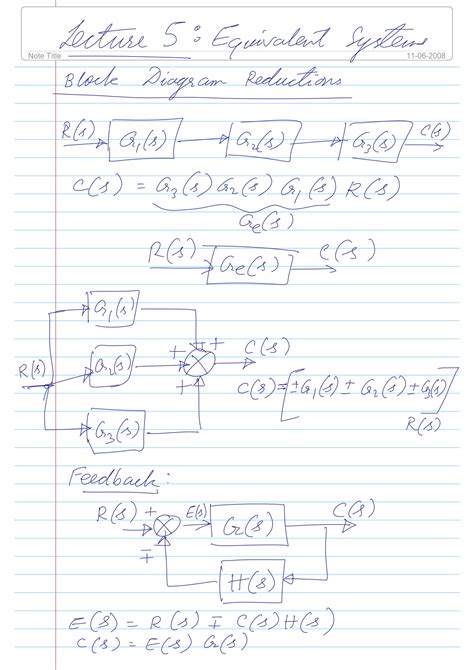 Lecture 5: Equivalent Systems
Note Title 11-06-2008
Block Diagram Reductions
R(s) G₁(s) G₂(s) G₃(s) C(s)
C(s) = G₃(s) G₂(s) G₁(s) R(s)
Ge(s)
R(s) Ge(s) C(s)
G₁(s)
+ +
R(s) G₂(s) + C(s)
C(s)=[±G₁(s) ± G₂(s) ± G₃(s)]
R(s)
G₃(s)
Feedback:
R(s) + E(s) G(s) C(s)
∓
H(s)
E(s) = R(s) ∓ C(s)H(s)
C(s) = E(s) G(s)